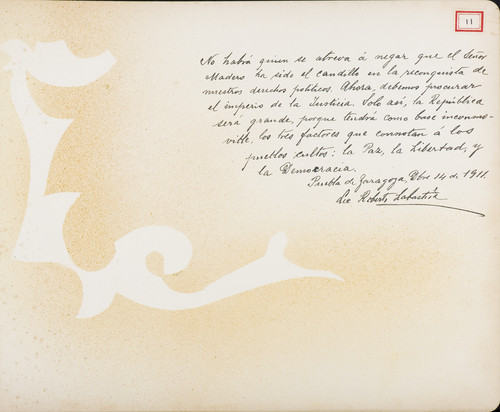 11
No habrá quien se atreva á negar que el Señor
Madero ha sido el caudillo en la reconquista de
nuestros derechos políticos. Ahora, debemos procurar
el imperio de la Justicia. Solo así, la República
será grande, porque tendrá como base inconmo-
vible, los tres factores que connotan á los
pueblos cultos: la Paz, la Libertad, y
la Democracia.
Puebla de Zaragoza, Dbre 14 de 1911.
Lic Roberto Labastida